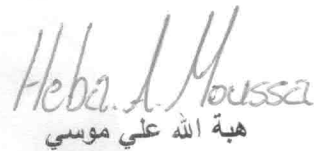 Heba. A. Moussa
هبة الله علي موسي